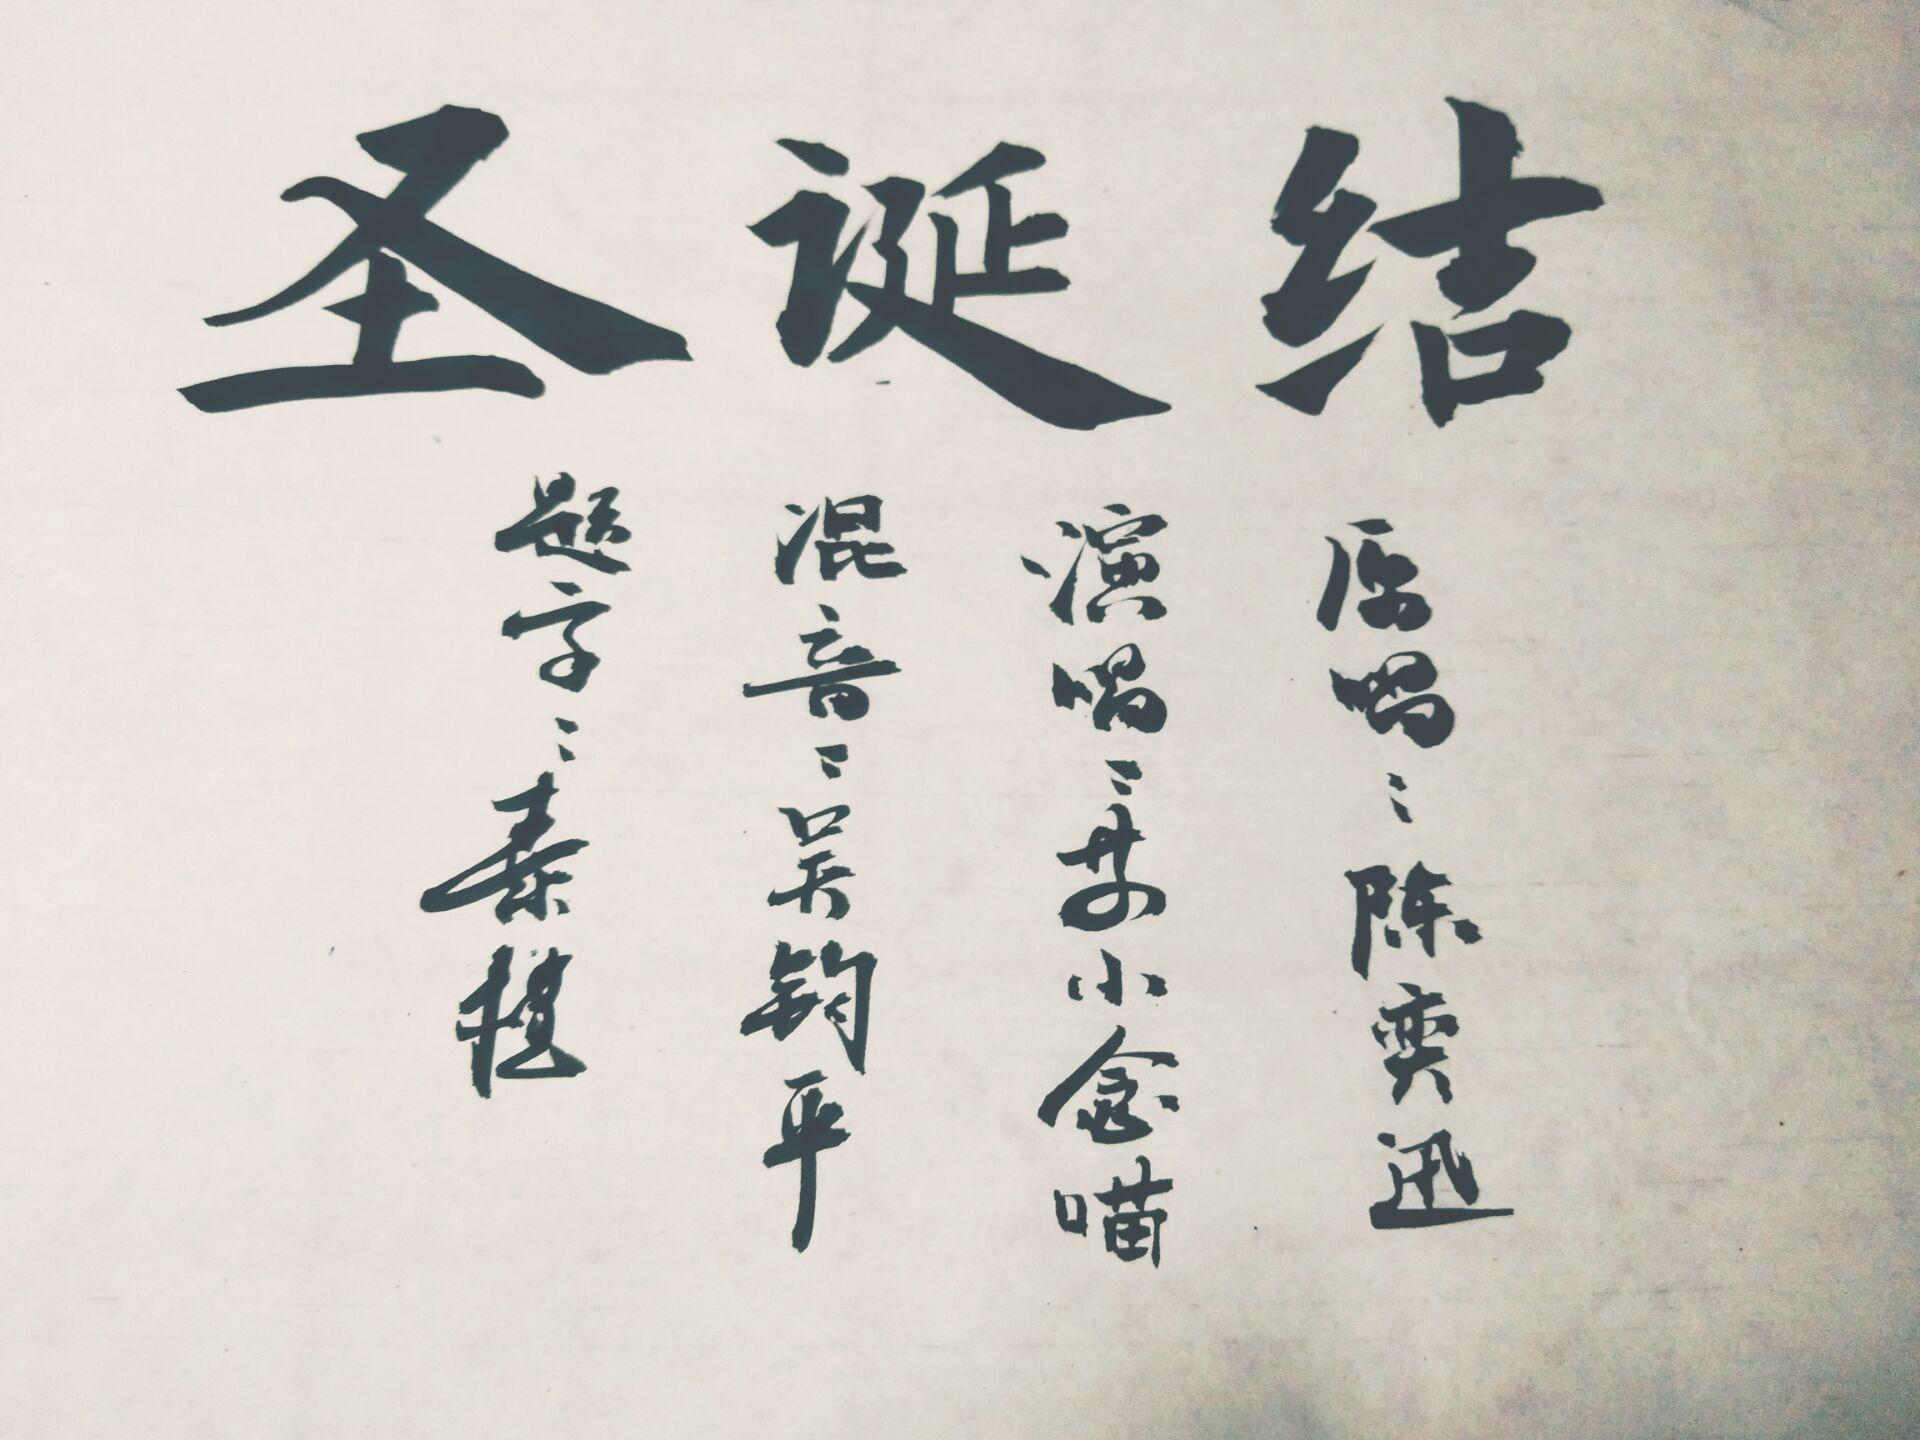 圣诞结
原唱：陈奕迅
演唱：井小念喵
混音：吴钧平
题字：秦